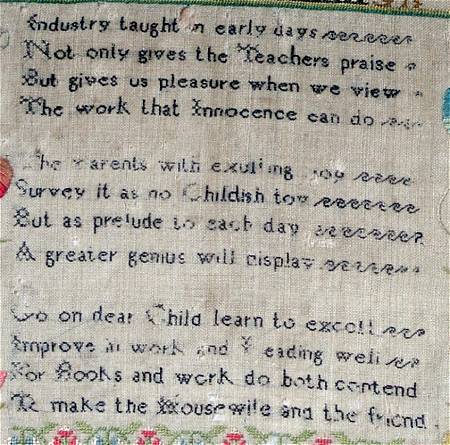 Industry taught in early days
Not only gives the Teachers praise
But gives us pleasure when we view
The work that Innocence can do
The Parents with exulting Joy
Survey it as no Childish toy
But as prelude to each day
A greater genius will display
Go on dear Child learn to excell
Improve in work and Reading well
For Books and work do both contend
To make the Housewife and the friend